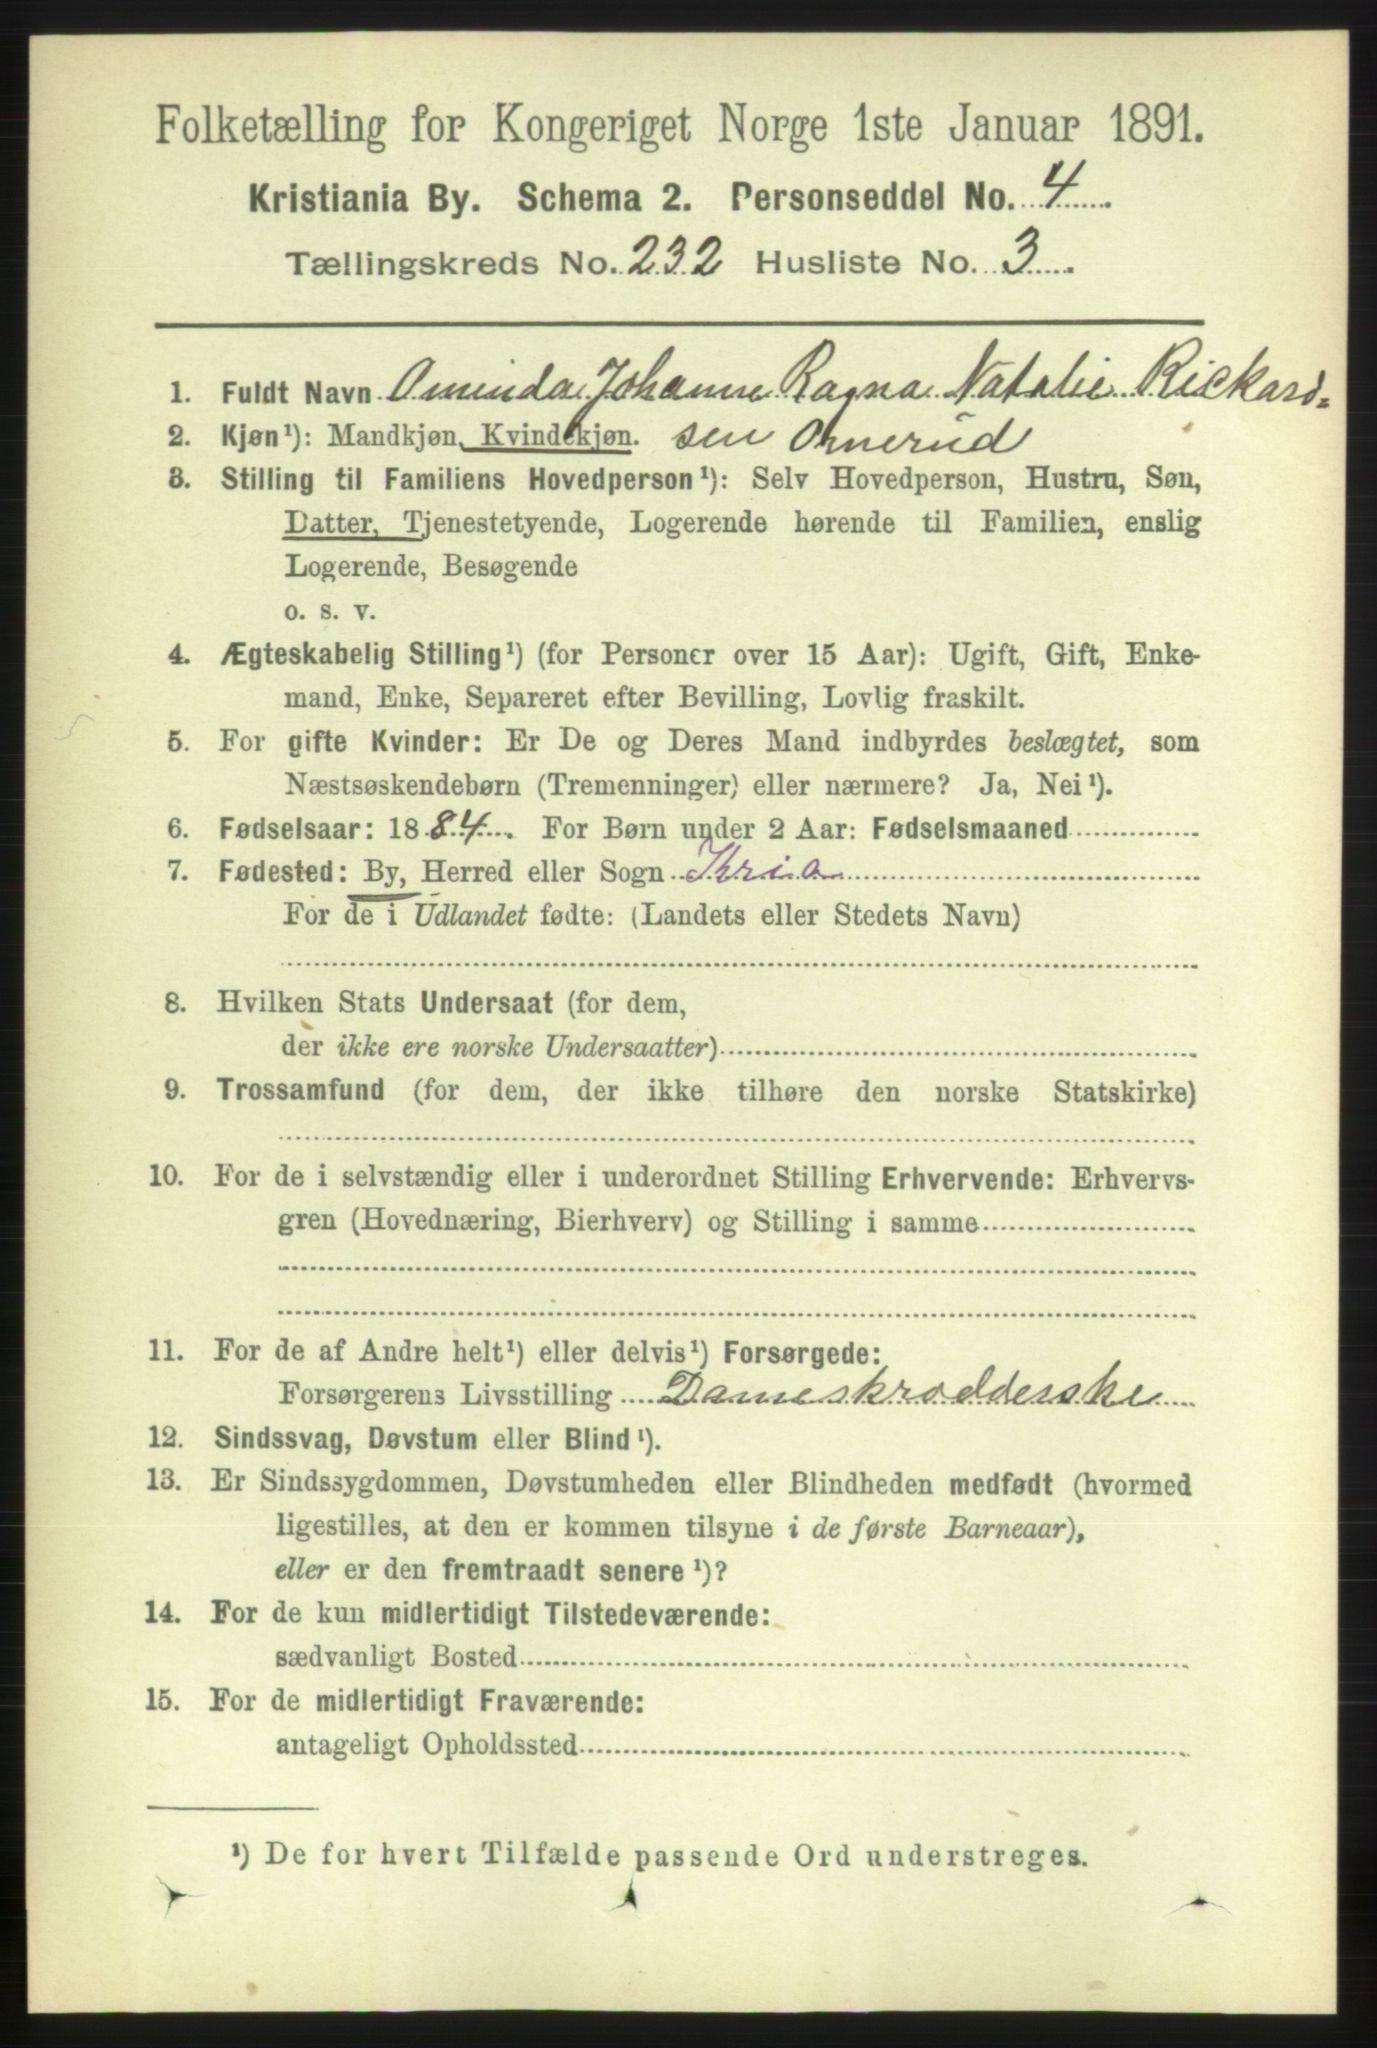 Folketælling for Kongeriget Norge 1ste Januar 1891.
Kristiania By. Schema 2. Personseddel No. 4
Tællingskreds No. 232 Husliste No. 3
1. Fuldt Navn Ominda Johanne Ragna Natalie Rickard=
2. Kjøn¹): Mandkjøn, Kvindekjøn. sen Ornerud
3. Stilling til Familiens Hovedperson¹): Selv Hovedperson, Hustru, Søn,
Datter, Tjenestetyende, Logerende hørende til Familien, enslig
Logerende, Besøgende
o. s. v.
4. Ægteskabelig Stilling¹) (for Personer over 15 Aar): Ugift, Gift, Enke-
mand, Enke, Separeret efter Bevilling, Lovlig fraskilt.
5. For gifte Kvinder: Er De og Deres Mand indbyrdes beslægtet, som
Næstsøskendebørn (Tremenninger) eller nærmere? Ja, Nei¹).
6. Fødselsaar: 1884. For Børn under 2 Aar: Fødselsmaaned
7. Fødested: By, Herred eller Sogn Kria
For de i Udlandet fødte: (Landets eller Stedets Navn)
8. Hvilken Stats Undersaat (for dem,
der ikke ere norske Undersaatter)
9. Trossamfund (for dem, der ikke tilhøre den norske Statskirke)
10. For de i selvstændig eller i underordnet Stilling Erhvervende: Erhvervs-
gren (Hovednæring, Bierhverv) og Stilling i samme
11. For de af Andre helt¹) eller delvis¹) Forsørgede:
Forsørgerens Livsstilling Dameskrædderske
12. Sindssvag, Døvstum eller Blind¹).
13. Er Sindssygdommen, Døvstumheden eller Blindheden medfødt (hvormed
ligestilles, at den er kommen tilsyne i de første Barneaar),
eller er den fremtraadt senere¹)?
14. For de kun midlertidigt Tilstedeværende:
sædvanligt Bosted
15. For de midlertidigt Fraværende:
antageligt Opholdssted
¹) De for hvert Tilfælde passende Ord understreges.